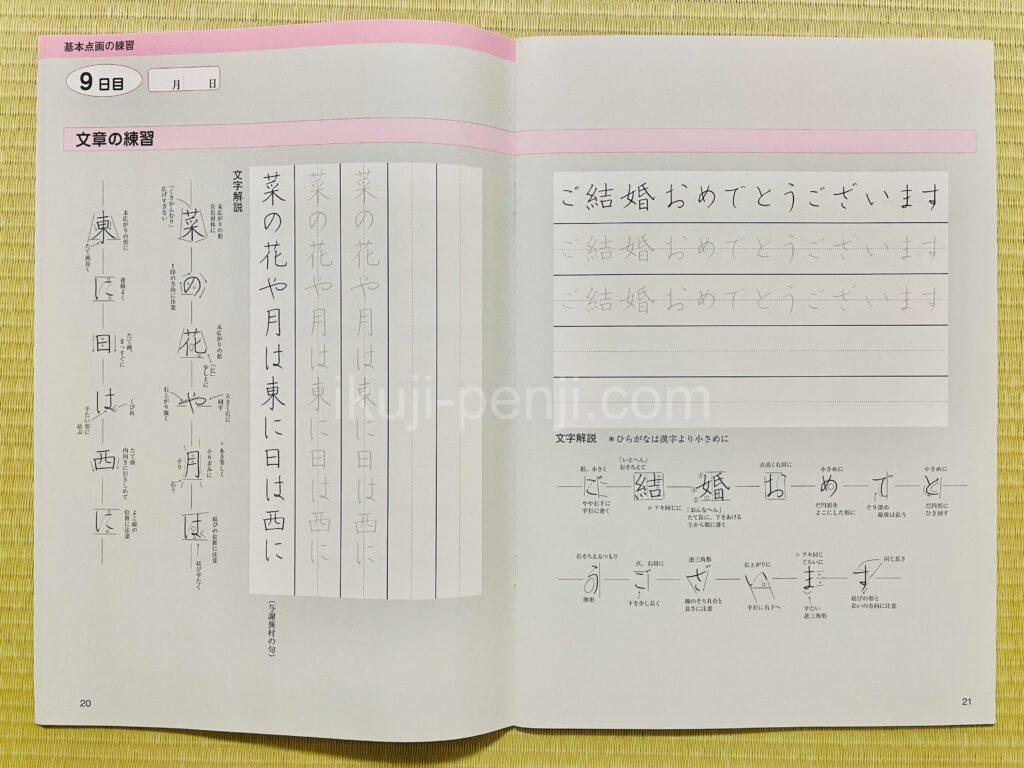 基本点画の練習
9日目
月 日
文章の練習
文字解説
菜の花や月は東に日は西に
菜の花や月は東に日は西に
菜の花や月は東に日は西に
(与謝蕪村の句)
末広がりの形に
左右対称に
菜
「くさかんむり」
広げすぎない
の
↑印の方向に注意
末広がりの形
花
「匕」
少し上に
大きく右に
回す
や
右上がり強く
あき等しく
そりぎみに
月
そり
払う
結びの位置に注意
は
結び平たく
末広がりの形に
東
たて画長く
連絡よく
に
たて画、
まっすぐに
日
くびれ
は
平たい形に
結ぶ
たて画
内向きに引きしめて
西
よこ画の
位置に注意
に
20
ご結婚おめでとうございます
ご結婚おめでとうございます
ご結婚おめでとうございます
文字解説 *ひらがなは漢字より小さめに
形、小さく
ご
やや右下に
平行に書く
「いとへん」
右そろえて
結
○アキ同じに
婚
「おんなへん」
たて長に、下をあける
①から順に書く
点高く右羽に
お
小さめに
め
だ円形を
よこにした形に
で
そり深め
最後は払う
小さめに
と
だ円形に
ひき回す
右そろえるつもり
う
卵形
点、右羽に
ご
下を少し長く
逆三角形
ざ
線のそり具合と
長さに注意
右上がりに
い
平行に右下へ
○アキ同じ
ぐらいに
ま
平たい
逆三角形
同じ長さ
す
結びの形と
払いの方向に注意
21
ikuji-penji.com